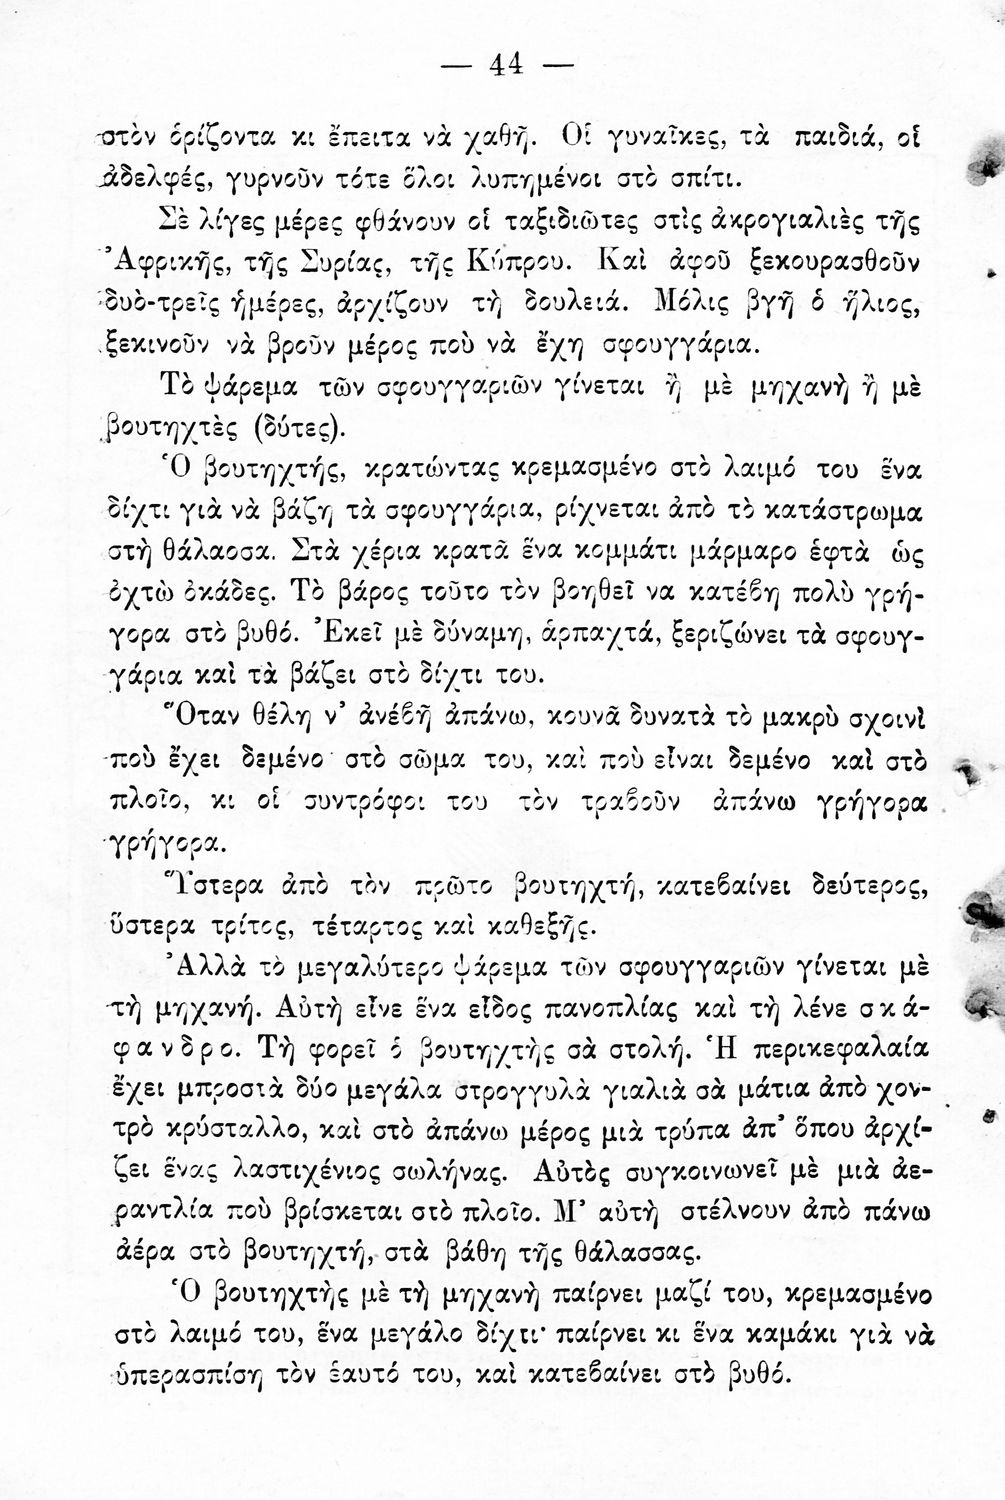 — 44 —
στὸν ὁρίζοντα κι ἔπειτα νὰ χαθῆ. Οἱ γυναῖκες, τὰ παιδιά, οἱ
ἀδελφές, γυρνοῦν τότε ὅλοι λυπημένοι στὸ σπίτι.
Σὲ λίγες μέρες φθάνουν οἱ ταξιδιῶτες στὶς ἀκρογιαλιὲς τῆς
Ἀφρικῆς, τῆς Συρίας, τῆς Κύπρου. Καὶ ἀφοῦ ξεκουρασθοῦν
δυὸ-τρεῖς ἡμέρες, ἀρχίζουν τὴ δουλειά. Μόλις βγῆ ὁ ἥλιος,
ξεκινοῦν νὰ βροῦν μέρος ποὺ νὰ ἔχη σφουγγάρια.
Τὸ ψάρεμα τῶν σφουγγαριῶν γίνεται ἢ μὲ μηχανὴ ἢ μὲ
βουτηχτὲς (δύτες).
Ὁ βουτηχτής, κρατώντας κρεμασμένο στὸ λαιμό του ἕνα
δίχτι γιὰ νὰ βάζη τὰ σφουγγάρια, ρίχνεται ἀπὸ τὸ κατάστρωμα
στὴ θάλαοσα. Στὰ χέρια κρατᾶ ἕνα κομμάτι μάρμαρο ἑφτὰ ὡς
ὀχτὼ ὀκάδες. Τὸ βάρος τοῦτο τὸν βοηθεῖ να κατέϐη πολὺ γρή-
γορα στὸ βυθό. Ἐκεῖ μὲ δύναμη, ἁρπαχτά, ξεριζώνει τὰ σφουγ-
γάρια καὶ τὰ βάζει στὸ δίχτι του.
Ὅταν θέλη ν’ ἀνέϐῆ ἀπάνω, κουνᾶ δυνατὰ τὸ μακρὺ σχοινὶ
ποὺ ἔχει δεμένο στὸ σῶμα του, καὶ ποὺ εἶναι δεμένο καὶ στὸ
πλοῖο, κι οἱ συντρόφοι του τὸν τραϐοῦν ἀπάνω γρήγορα
γρήγορα.
Ὕστερα ἀπὸ τὸν πρῶτο βουτηχτή, κατεϐαίνει δεύτερος,
ὕστερα τρίτος, τέταρτος καὶ καθεξῆς.
Ἀλλὰ τὸ μεγαλύτερο ψάρεμα τῶν σφουγγαριῶν γίνεται μὲ
τὴ μηχανή. Αὐτὴ εἶνε ἕνα εἶδος πανοπλίας καὶ τὴ λένε σκά-
φανδρο. Τὴ φορεῖ ὁ βουτηχτὴς σὰ στολή. Ἡ περικεφαλαία
ἔχει μπροστὰ δύο μεγάλα στρογγυλὰ γιαλιὰ σὰ μάτια ἀπὸ χον-
τρὸ κρύσταλλο, καὶ στὸ ἀπάνω μέρος μιὰ τρύπα ἀπ’ ὅπου ἀρχί-
ζει ἕνας λαστιχένιος σωλήνας. Αὐτὸς συγκοινωνεῖ μὲ μιὰ ἀε-
ραντλία ποὺ βρίσκεται στὸ πλοῖο. Μ’ αὐτὴ στέλνουν ἀπὸ πάνω
ἀέρα στὸ βουτηχτή, στὰ βάθη τῆς θάλασσας.
Ὁ βουτηχτὴς μὲ τὴ μηχανὴ παίρνει μαζί του, κρεμασμένο
στὸ λαιμό του, ἕνα μεγάλο δίχτι· παίρνει κι ἕνα καμάκι γιὰ νὰ
ὑπερασπίση τὸν ἑαυτό του, καὶ κατεϐαίνει στὸ βυθό.